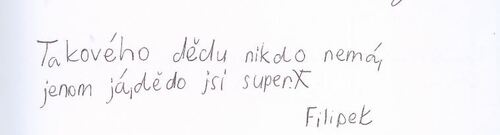 Takového dědu nikdo nemá,
jenom já,dědo jsi super.X
Filipek